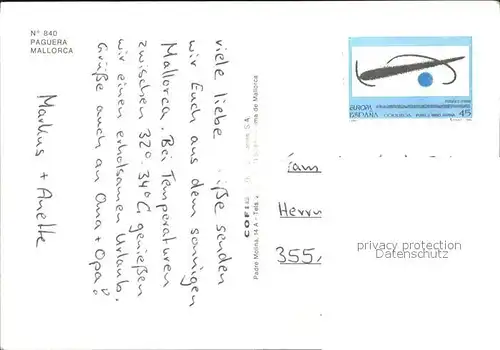 N° 840
PAGUERA
MALLORCA
viele liebe ...iße senden
wir Euch aus dem sonnigen
Mallorca. Bei Temperaturen
zwischen 32°-34°C genießen
wir einen erholsamen Urlaub.
Grüße auch an Oma + Opa!
Markus + Anette
Padre Molina, 14 A - Tels.
ma de Mallorca
EUROPA
ESPAÑA CORREOS
45
Herrn
355
privacy protection
Datenschutz